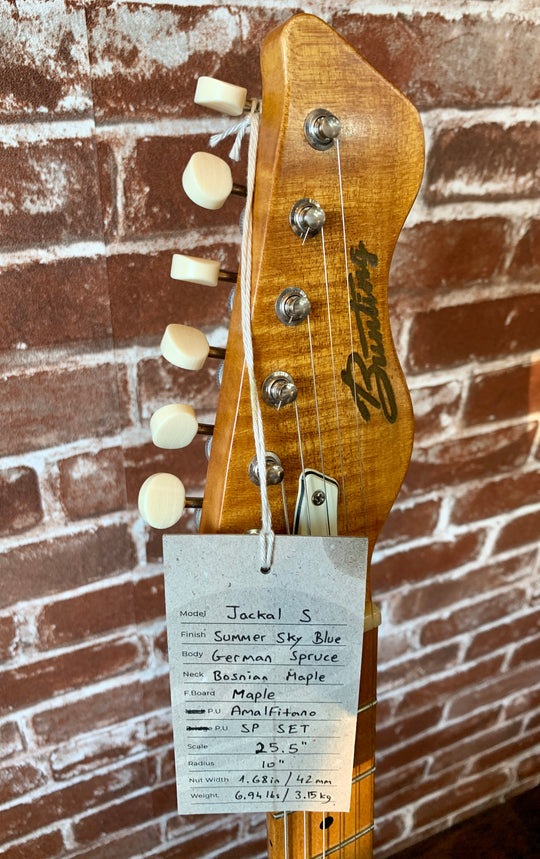 Bunting
Model Jackal S
Finish Summer Sky Blue
Body German Spruce
Neck Bosnian Maple
F.Board Maple
P.U Amalfitano
P.U SP SET
Scale 25.5"
Radius 10"
Nut Width 1.68in / 42mm
Weight. 6.94 lbs / 3.15kg